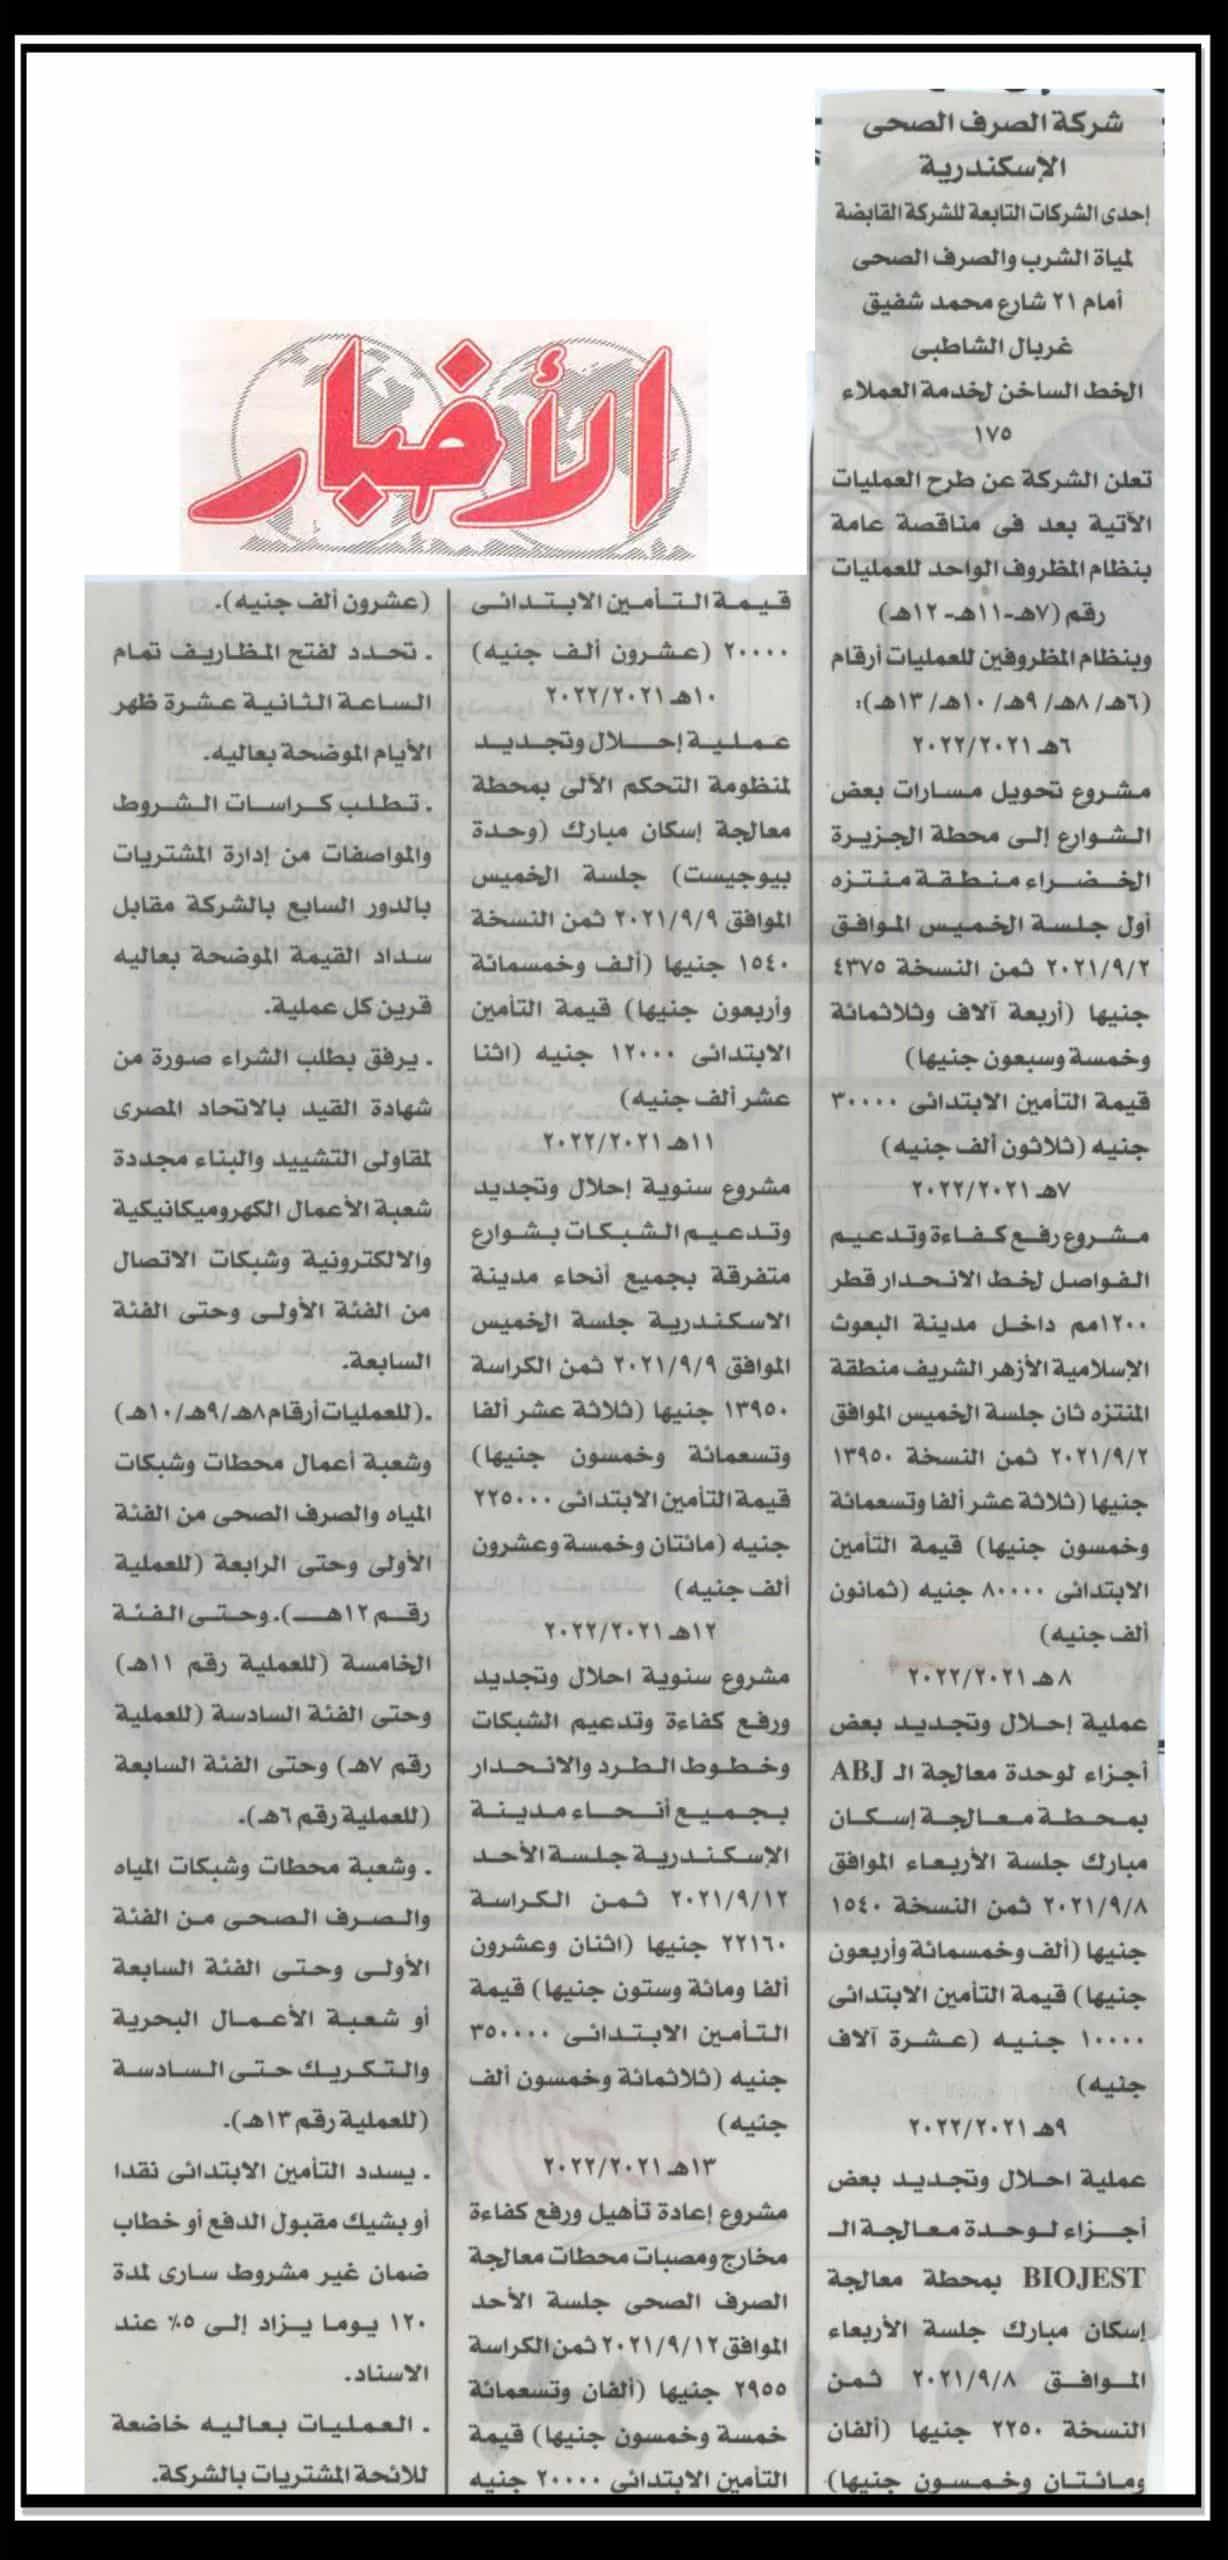 شركة الصرف الصحى
الإسكندرية
إحدى الشركات التابعة للشركة القابضة
لمياة الشرب والصرف الصحى
أمام ٢١ شارع محمد شفيق
غربال الشاطبى
الخط الساخن لخدمة العملاء
١٧٥
تعلن الشركة عن طرح العمليات
الآتية بعد فى مناقصة عامة
بنظام المظروف الواحد للعمليات
رقم (٧هـ-١١هـ-١٢هـ)
وبنظام المظروفين للعمليات أرقام
(٦هـ/٨هـ/٩هـ/١٠هـ/١٣هـ):
٦هـ ٢٠٢٢/٢٠٢١
مشروع تحويل مسارات بعض
الشوارع إلى محطة الجزيرة
الخضراء منطقة منتزه
أول جلسة الخميس الموافق
٢٠٢١/٩/٢ ثمن النسخة ٤٣٧٥
جنيها (أربعة آلاف وثلاثمائة
وخمسة وسبعون جنيها)
قيمة التأمين الابتدائى ٣٠٠٠٠
جنيه (ثلاثون ألف جنيه)
٧هـ ٢٠٢٢/٢٠٢١
مشروع رفع كفاءة وتدعيم
الفواصل لخط الانحدار قطر
١٢٠٠مم داخل مدينة البعوث
الإسلامية الأزهر الشريف منطقة
المنتزه ثان جلسة الخميس الموافق
٢٠٢١/٩/٢ ثمن النسخة ١٣٩٥٠
جنيها (ثلاثة عشر ألفا وتسعمائة
وخمسون جنيها) قيمة التأمين
الابتدائى ٨٠٠٠٠ جنيه (ثمانون
ألف جنيه)
٨هـ ٢٠٢٢/٢٠٢١
عملية إحلال وتجديد بعض
أجزاء لوحدة معالجة الـ ABJ
بمحطة معالجة إسكان
مبارك جلسة الأربعاء الموافق
٢٠٢١/٩/٨ ثمن النسخة ١٥٤٠
جنيها (ألف وخمسمائة وأربعون
جنيها) قيمة التأمين الابتدائى
١٠٠٠٠ جنيه (عشرة آلاف
جنيه)
٩هـ ٢٠٢٢/٢٠٢١
عملية احلال وتجديد بعض
أجزاء لوحدة معالجة الـ
BIOJEST بمحطة معالجة
إسكان مبارك جلسة الأربعاء
الموافق ٢٠٢١/٩/٨ ثمن
النسخة ٢٢٥٠ جنيها (ألفان
ومائتان وخمسون جنيها)
الأخبار
قيمة التأمين الابتدائى
٢٠٠٠٠ (عشرون ألف جنيه)
١٠هـ ٢٠٢٢/٢٠٢١
عملية إحلال وتجديد
لمنظومة التحكم الآلى بمحطة
معالجة إسكان مبارك (وحدة
بيوجيست) جلسة الخميس
الموافق ٢٠٢١/٩/٩ ثمن النسخة
١٥٤٠ جنيها (ألف وخمسمائة
وأربعون جنيها) قيمة التأمين
الابتدائى ١٢٠٠٠ جنيه (اثنا
عشر ألف جنيه)
١١هـ ٢٠٢٢/٢٠٢١
مشروع سنوية إحلال وتجديد
وتدعيم الشبكات بشوارع
متفرقة بجميع أنحاء مدينة
الاسكندرية جلسة الخميس
الموافق ٢٠٢١/٩/٩ ثمن الكراسة
١٣٩٥٠ جنيها (ثلاثة عشر ألفا
وتسعمائة وخمسون جنيها)
قيمة التأمين الابتدائى ٢٢٥٠٠٠
جنيه (مائتان وخمسة وعشرون
ألف جنيه)
١٢هـ ٢٠٢٢/٢٠٢١
مشروع سنوية احلال وتجديد
ورفع كفاءة وتدعيم الشبكات
وخطوط الطرد والانحدار
بجميع أنحاء مدينة
الإسكندرية جلسة الأحد
٢٠٢١/٩/١٢ ثمن الكراسة
٢٢١٦٠ جنيها (اثنان وعشرون
ألفا ومائة وستون جنيها) قيمة
التأمين الابتدائى ٣٥٠٠٠٠
جنيه (ثلاثمائة وخمسون ألف
جنيه)
١٣هـ ٢٠٢٢/٢٠٢١
مشروع إعادة تأهيل ورفع كفاءة
مخارج ومصبات محطات معالجة
الصرف الصحى جلسة الأحد
الموافق ٢٠٢١/٩/١٢ ثمن الكراسة
٢٩٥٥ جنيها (ألفان وتسعمائة
خمسة وخمسون جنيها) قيمة
التأمين الابتدائى ٢٠٠٠٠ جنيه
(عشرون ألف جنيه).
. تحدد لفتح المظاريف تمام
الساعة الثانية عشرة ظهر
الأيام الموضحة بعاليه.
. تطلب كراسات الشروط
والمواصفات من إدارة المشتريات
بالدور السابع بالشركة مقابل
سداد القيمة الموضحة بعاليه
قرين كل عملية.
. يرفق بطلب الشراء صورة من
شهادة القيد بالاتحاد المصرى
لمقاولى التشييد والبناء مجددة
شعبة الأعمال الكهروميكانيكية
والالكترونية وشبكات الاتصال
من الفئة الأولى وحتى الفئة
السابعة.
.(للعمليات أرقام ٨هـ/٩هـ/١٠هـ)
وشعبة أعمال محطات وشبكات
المياه والصرف الصحى من الفئة
الأولى وحتى الرابعة (للعملية
رقم ١٢هـ). وحتى الفئة
الخامسة (للعملية رقم ١١هـ)
وحتى الفئة السادسة (للعملية
رقم ٧هـ) وحتى الفئة السابعة
(للعملية رقم ٦هـ).
. وشعبة محطات وشبكات المياه
والصرف الصحى من الفئة
الأولى وحتى الفئة السابعة
أو شعبة الأعمال البحرية
والتكريك حتى السادسة
(للعملية رقم ١٣هـ).
. يسدد التأمين الابتدائى نقدا
أو بشيك مقبول الدفع أو خطاب
ضمان غير مشروط سارى لمدة
١٢٠ يوما يزاد إلى ٥٪ عند
الاسناد.
. العمليات بعاليه خاضعة
للائحة المشتريات بالشركة.